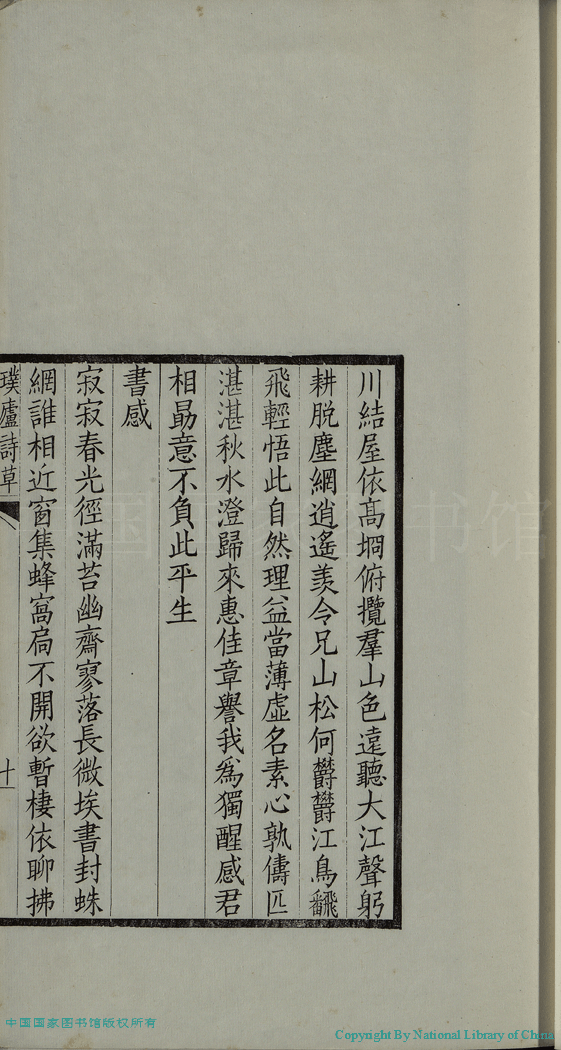 川結屋依高坰俯攬羣山色遠聽大江聲躬
耕脱塵網逍遙羨令兄山松何鬱鬱江鳥翻
飛輕悟此自然理益當薄虛名素心孰儔匹
湛湛秋水澄歸來惠佳章譽我為獨醒感君
相勗意不負此平生
書感
寂寂春光徑滿苔幽齋寥落長微埃書封蛛
網誰相近窗集蜂窩扃不開欲暫棲依聊拂
璞廬詩草
十一
中国国家图书馆版权所有
Copyright By National Library of China